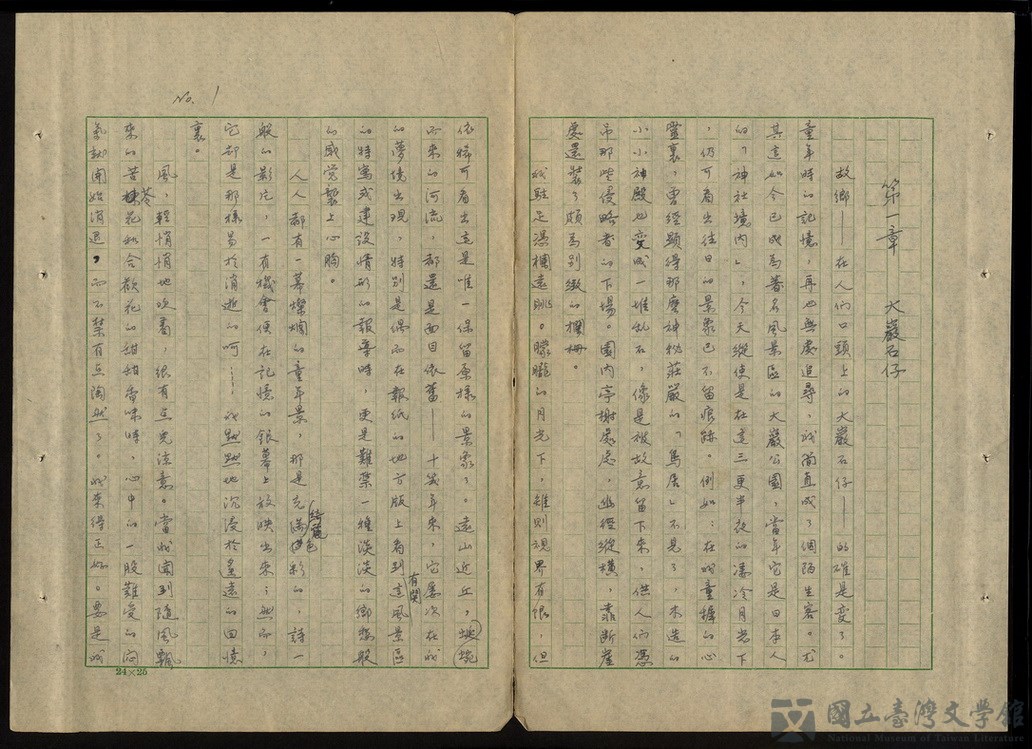 第一章　大巖石仔
故鄉——在人們口頭上的大巖石仔——的確是變了。
童年時的記憶，再也無處追尋，我簡直成了個陌生客。尤
其這如今已成為著名風景區的大巖公園，當年它是日本人
的「神社境內」，今天縱使是在這三更半夜的凄冷月光下
，仍可看出往日的景象已不留痕跡。例如：在我童稚的心
靈裏，曾經顯得那麼神秘莊嚴的「鳥居」不見了，木造的
小小神殿也變成一堆乱石，像是被故意留下來，供人們憑
吊那些侵略者的下場。園內亭榭處處，幽徑縱橫，靠斷崖
處還裝了頗為別緻的欄柵。
我駐足憑欄遠眺。朦朧的月光下，雖則視界有限，但
No. 1
依稀可看出這是唯一保留原樣的景象了。遠山近丘，蜿蜒
而來的河流，都還是面目依舊——十幾年來，它屡次在我
的夢境出現，特別是偶而在報紙的地方版上看到有関這風景區
的特寫或建設情形的報導時，更是難禁一種淡淡的鄉愁般
的感觉襲上心胸。
人人都有一幕燦爛的童年景，那是充滿綺麗色彩的，詩一
般的影片，一有機會便在記憶的銀幕上放映出來；然而，
它却是那樣易於消逝的呵……我默默地沉浸於遙遠的回憶
裏。
風，輕悄悄地吹着，很有点兒涼意。當我聞到隨風飄
來的苦苓花和合歡花的甜甜香味時，心中的一股難受的悶
氣就開始消退，而不禁有点陶然了。我來得正好。要是我
24×25
國立臺灣文學館
National Museum of Taiwan Literature